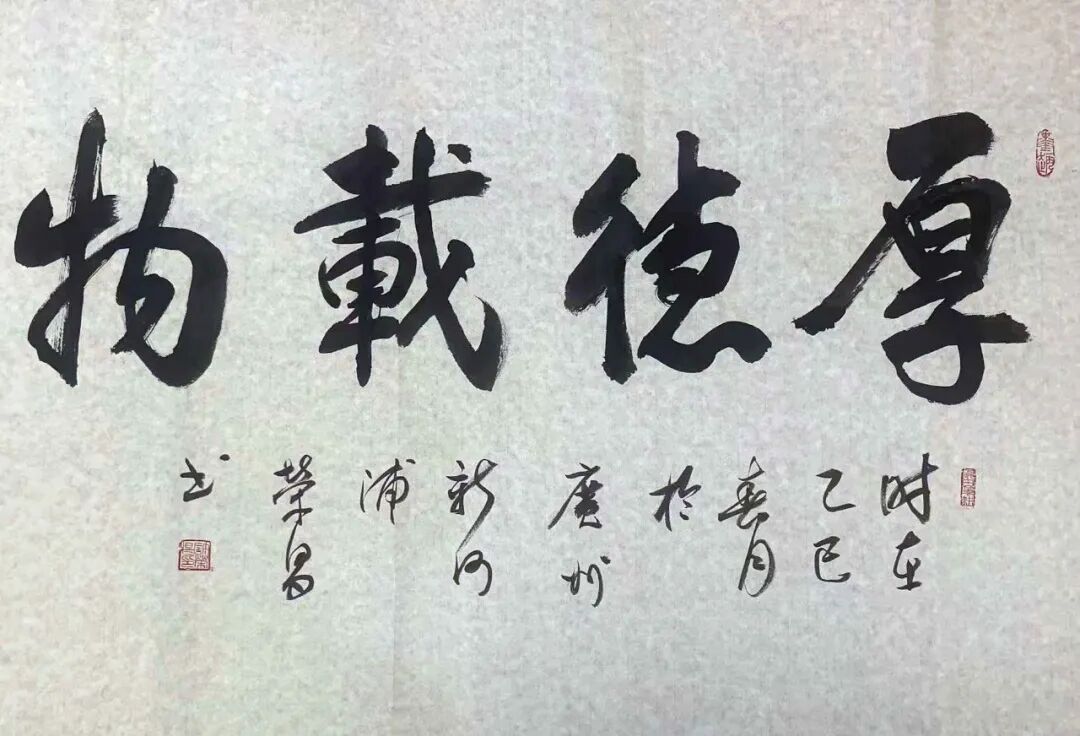 厚德載物
时在
乙巳
春月
於
廣州
新河
浦
榮昌
书